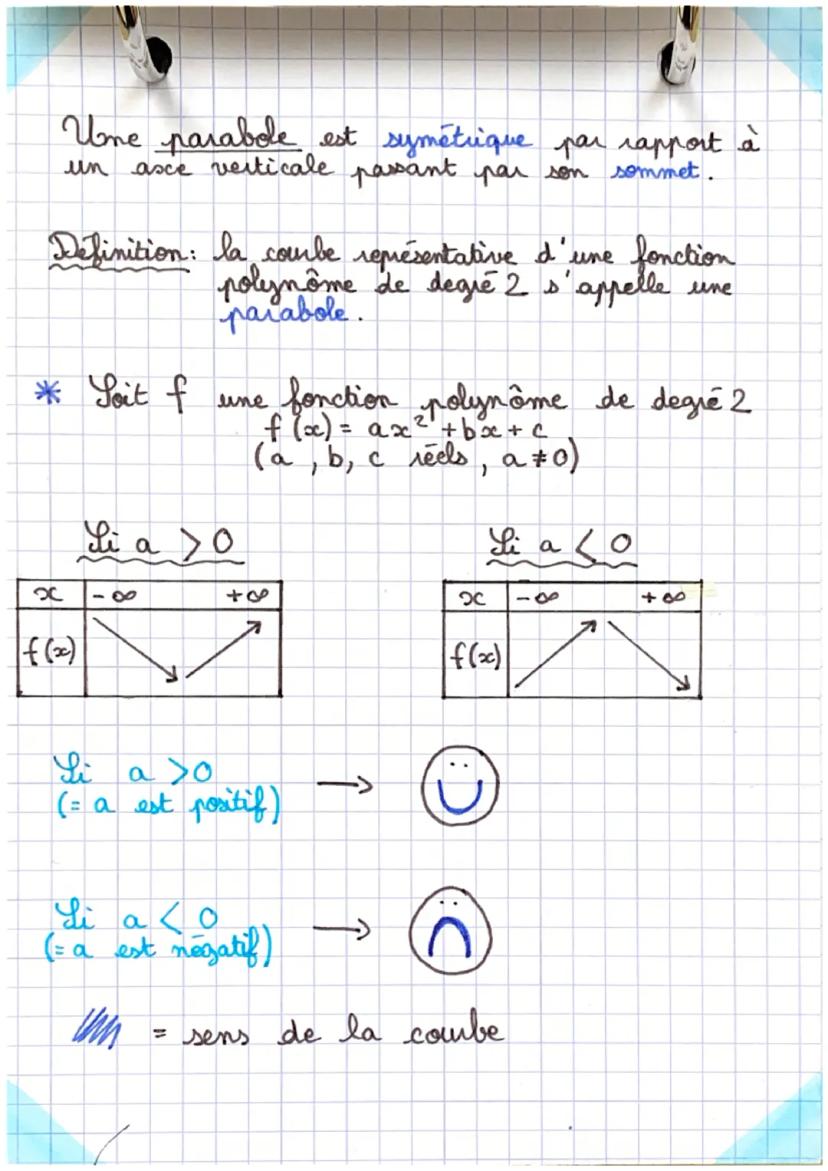 Une parabole est symétrique par rapport à
un axe verticale passant par son sommet.
Définition: la courbe représentative d'une fonction
polynôme de degré 2 s'appelle une
parabole.
* Soit f une fonction polynôme de degré 2
f(x) = ax² + bx + c
(a, b, c réels, a ≠ 0)
Si a > 0
x -∞ +∞
f(x)
Si a < 0
x -∞ +∞
f(x)
Si a > 0 →
(= a est positif)
Si a < 0 →
(= a est négatif)
= sens de la courbe